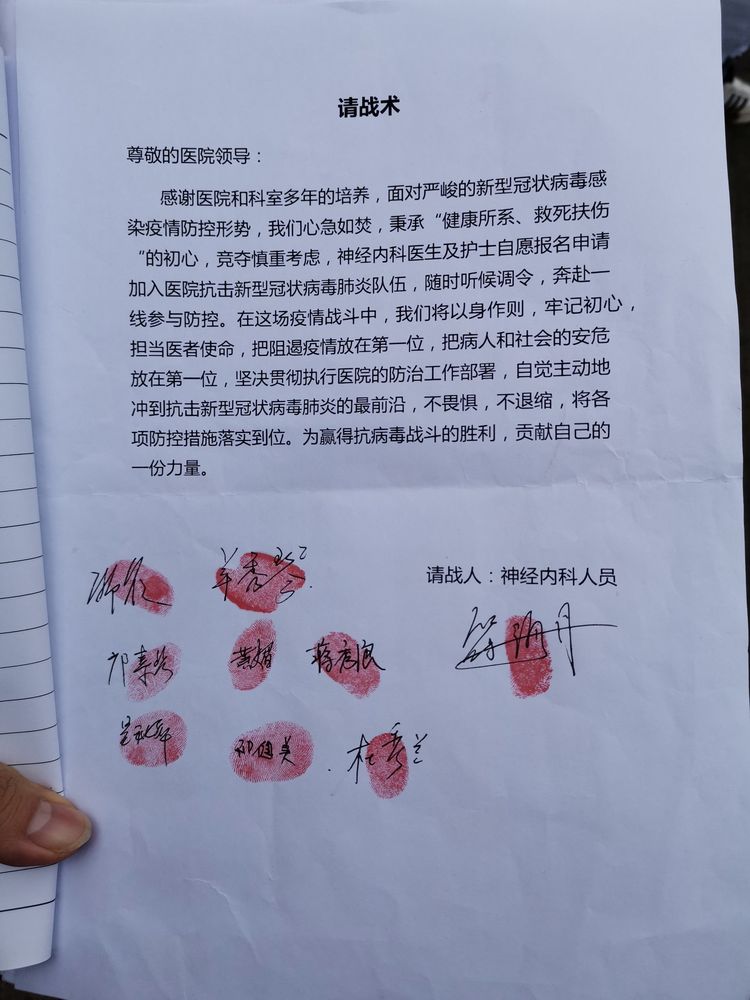 请战术
尊敬的医院领导：
感谢医院和科室多年的培养，面对严峻的新型冠状病毒感
染疫情防控形势，我们心急如焚，秉承“健康所系、救死扶伤
“的初心，竞夺慎重考虑，神经内科医生及护士自愿报名申请
加入医院抗击新型冠状病毒肺炎队伍，随时听候调令，奔赴一
线参与防控。在这场疫情战斗中，我们将以身作则，牢记初心，
担当医者使命，把阻遏疫情放在第一位，把病人和社会的安危
放在第一位，坚决贯彻执行医院的防治工作部署，自觉主动地
冲到抗击新型冠状病毒肺炎的最前沿，不畏惧，不退缩，将各
项防控措施落实到位。为赢得抗病毒战斗的胜利，贡献自己的
一份力量。
请战人：神经内科人员
黄娟
杜秀兰